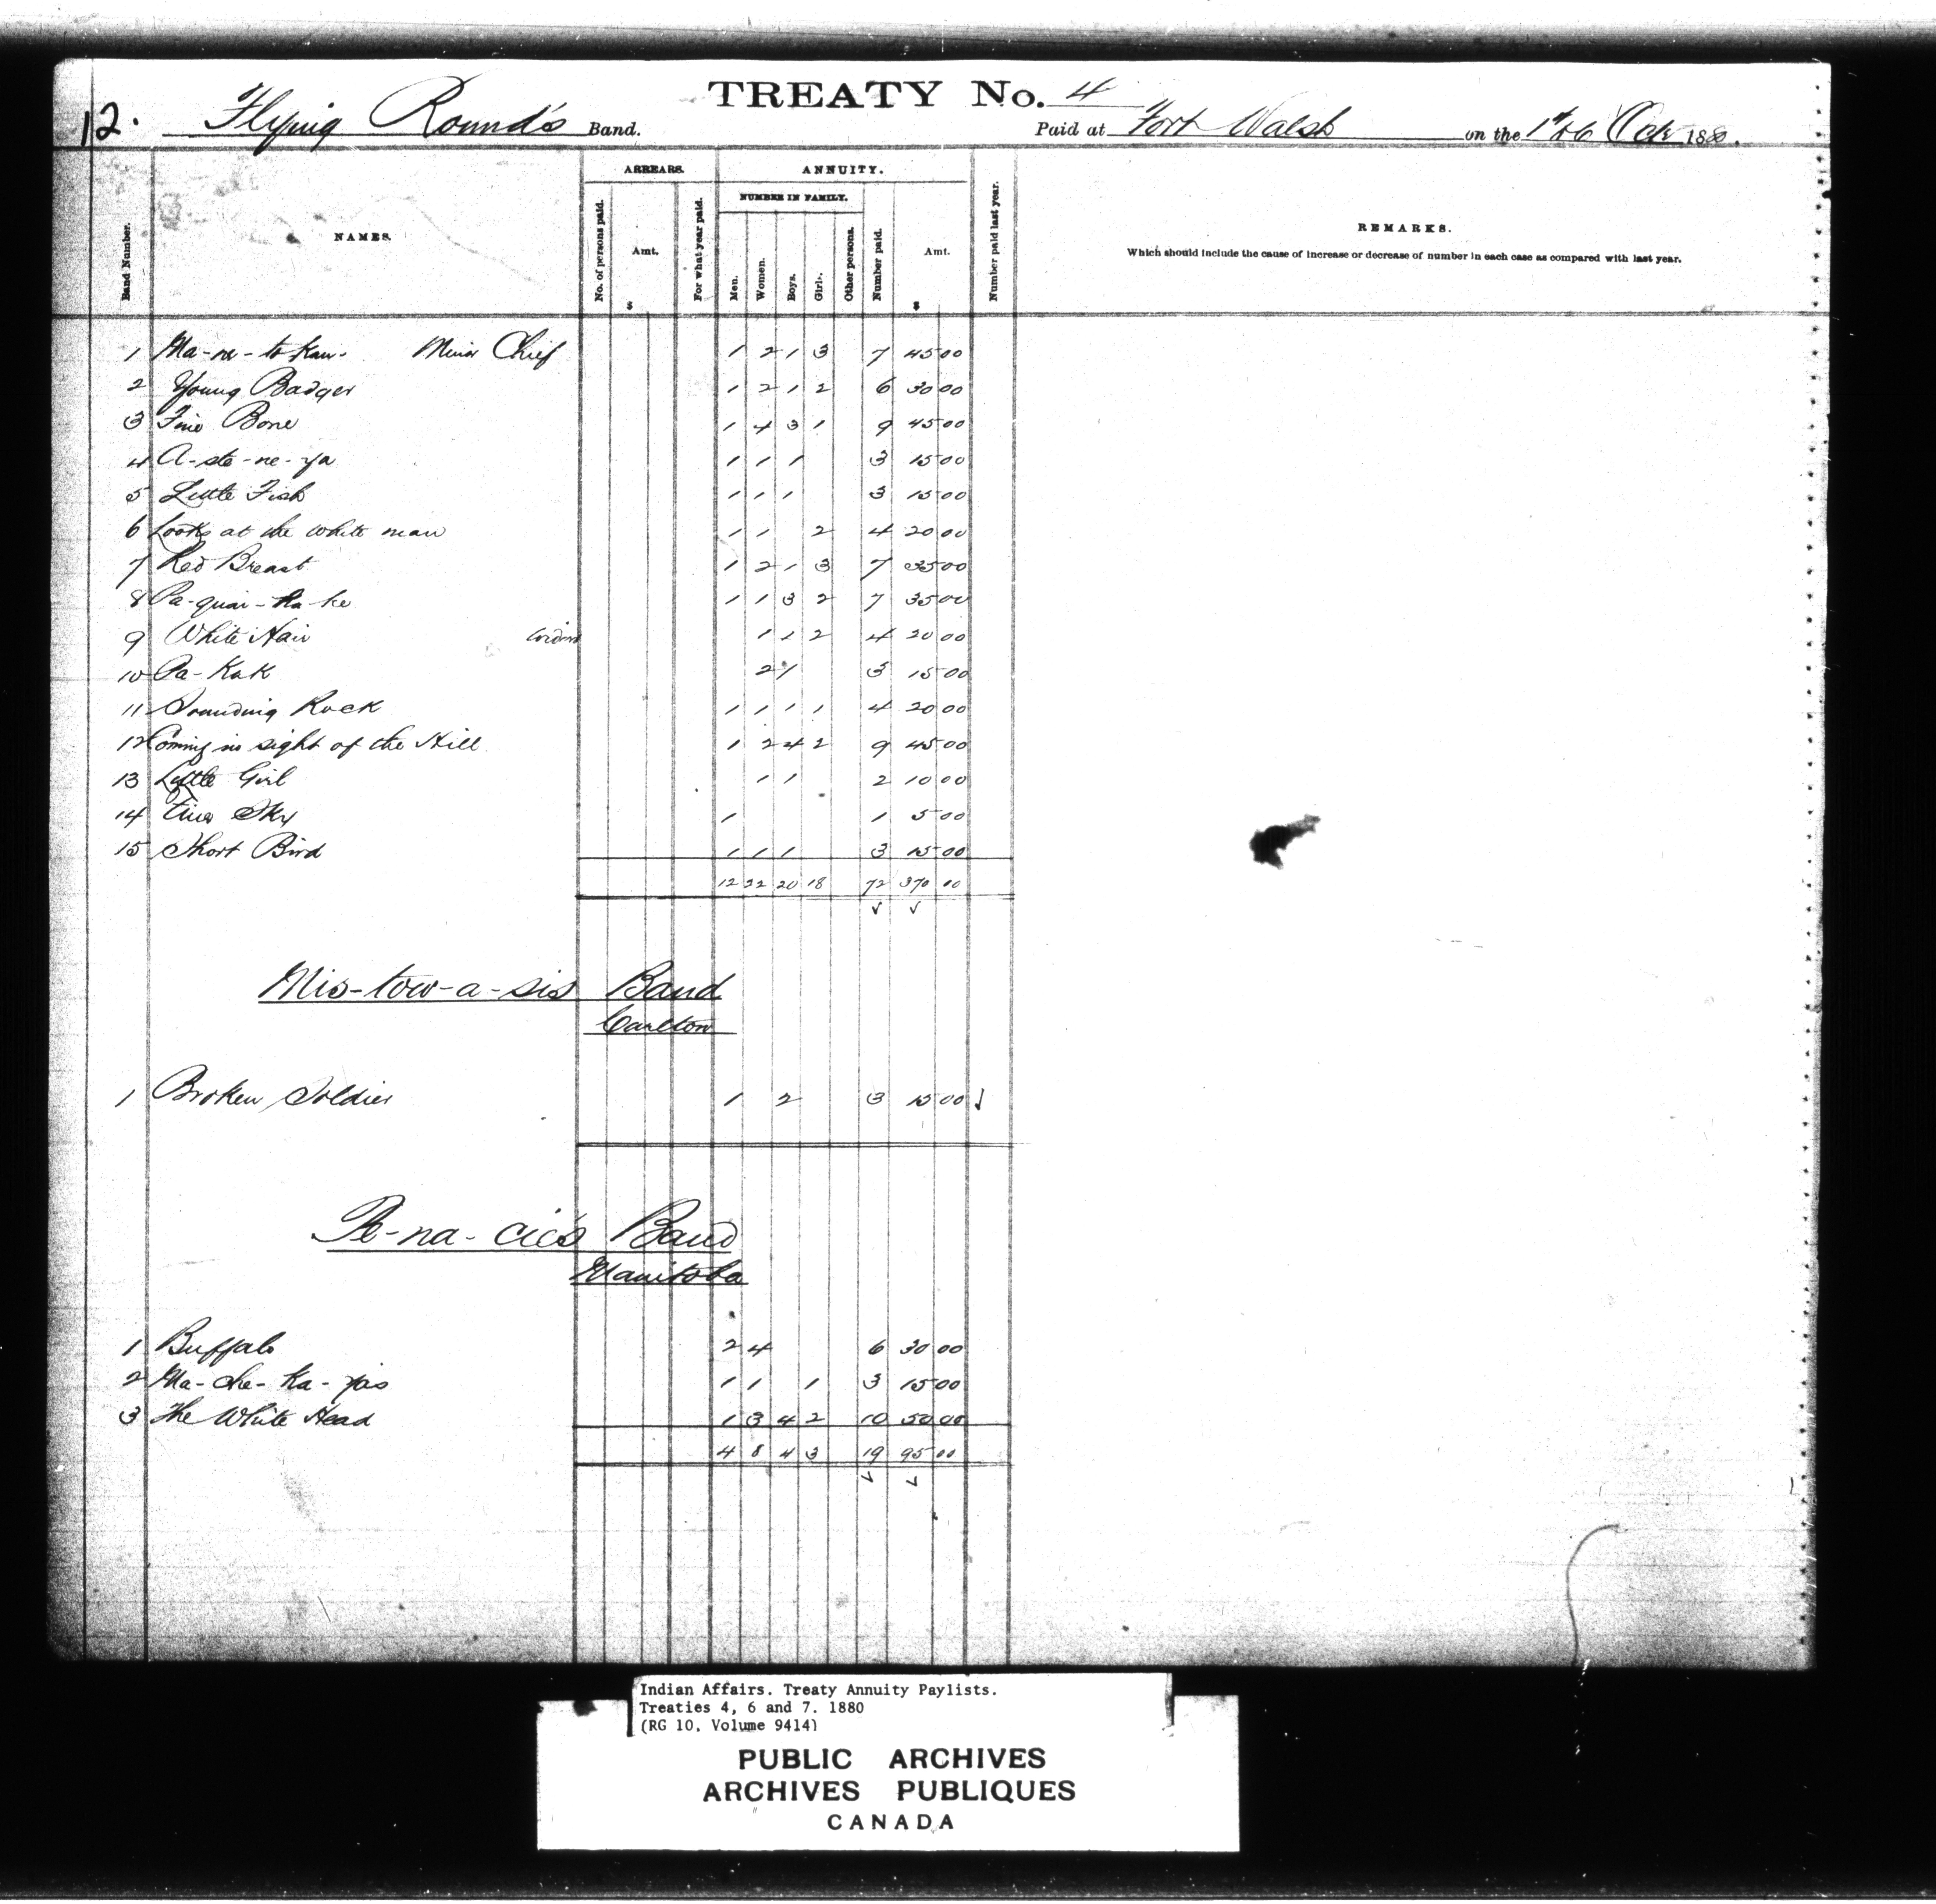 TREATY No. 4
12. Flying Round's Band. Paid at Fort Walsh on the 1st to 6 Oct 1880.
Band Number. NAMES. ARREARS. No. of persons paid. Amt. $ For what year paid. ANNUITY. NUMBER IN FAMILY. Men. Women. Boys. Girls. Other persons. Number paid. Amt. $ Number paid last year. REMARKS.
Which should include the cause of increase or decrease of number in each case as compared with last year.
1 Ma-ne-to-kan- Minor Chief 1 2 1 3 7 45 00
2 Young Badger 1 2 1 2 6 30 00
3 Fine Bone 1 4 3 1 9 45 00
4 A-ste-ne-ya 1 1 1 3 15 00
5 Little Fish 1 1 1 3 15 00
6 Looks at the white man 1 1 2 4 20 00
7 Red Breast 1 2 1 3 7 35 00
8 Pa-quai-ka-ke 1 1 3 2 7 35 00
9 White Hair widow 1 1 2 4 20 00
10 Pa-Kak 2 1 3 15 00
11 Sounding Rock 1 1 1 1 4 20 00
12 Coming in sight of the Hill 1 2 4 2 9 45 00
13 Little Girl 1 1 2 10 00
14 Sky 1 1 5 00
15 Short Bird 1 1 1 3 15 00
12 22 20 18 72 370 00
Mis-tow-a-sis Band
Carlton
1 Broken Soldier 1 2 3 15 00
Pe-na-cie's Band
Manitoba
1 Buffalo 2 4 6 30 00
2 Ma-che-ka-pis 1 1 1 3 15 00
3 The White Head 1 3 4 2 10 50 00
4 8 4 3 19 95 00
Indian Affairs. Treaty Annuity Paylists.
Treaties 4, 6 and 7. 1880
(RG 10, Volume 9414)
PUBLIC ARCHIVES
ARCHIVES PUBLIQUES
CANADA